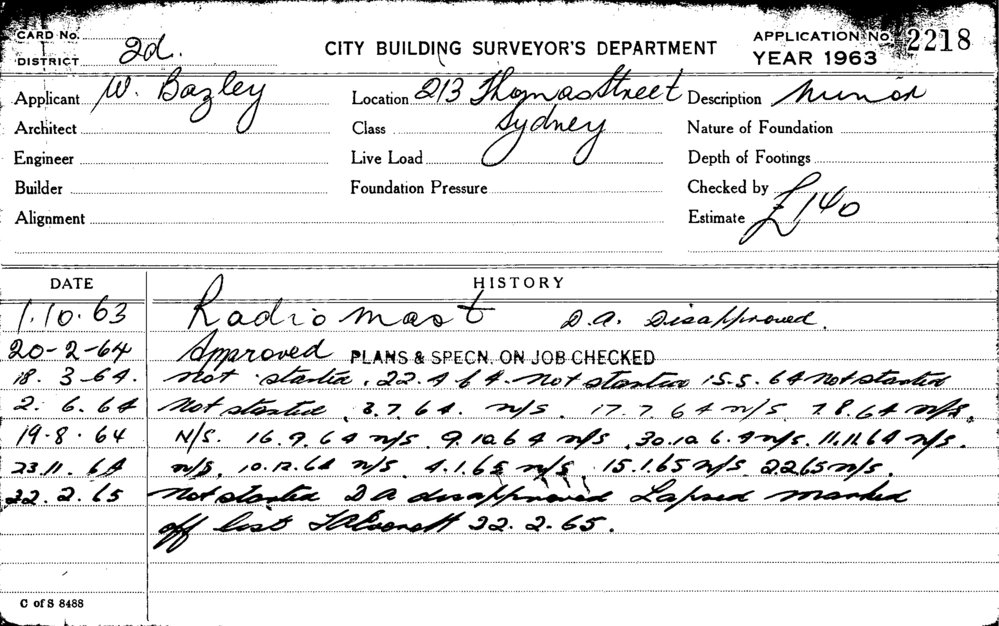 CARD No.
DISTRICT 2d.
CITY BUILDING SURVEYOR'S DEPARTMENT
APPLICATION No. 2218
YEAR 1963
Applicant W. Bazley
Location 213 Thomas Street
Description Minor
Architect
Class Sydney
Nature of Foundation
Engineer
Live Load
Depth of Footings
Builder
Foundation Pressure
Checked by
Alignment
Estimate £140
DATE HISTORY
1.10.63 Radio mast D.A. Disapproved.
20-2-64 Approved PLANS & SPECN. ON JOB CHECKED
18.3-64. Not started. 22.4.64. Not started 15.5.64 Not started
2.6.64 Not started. 3.7.64. n/s. 17.7.64 n/s 7.8.64 n/s.
19-8.64 N/S. 16.9.64 n/s. 9.10.64 n/s. 30.10.64 n/s. 11.11.64 n/s.
23.11.64 n/s. 10.12.64 n/s. 4.1.65 n/s 15.1.65 n/s 2.2.65 n/s.
22.2.65 Not started DA disapproved Lapsed marked
off list 22.2.65.
C of S 8488